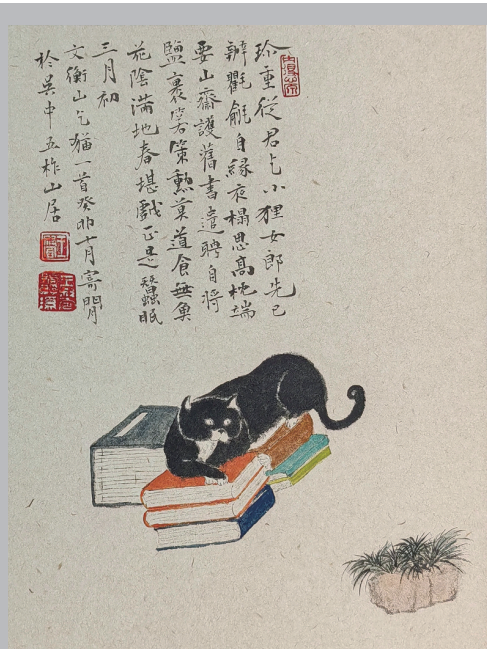 珍重從君乞小狸女郎先已
辦氍毹自緣夜榻思高枕端
要山齋護舊書遣聘自將
鹽裹箬策勲莫道食無魚
花陰滿地春堪戲正是蠶眠
三月初
文衡山乞猫一首癸卯十月寄閒
於吳中五柞山居